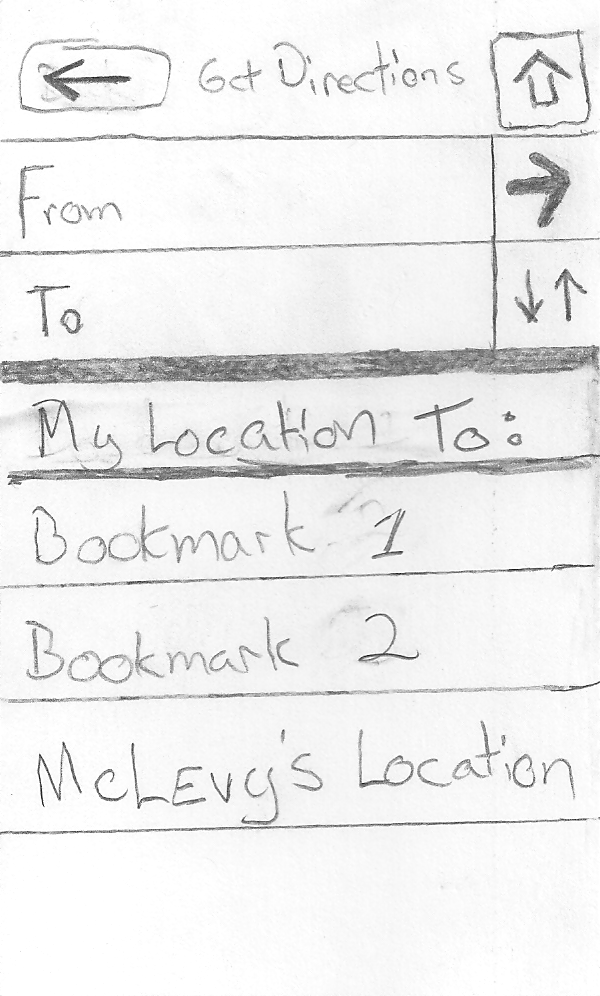 Get Directions
From
To
My Location To:
Bookmark 1
Bookmark 2
McLevy's Location